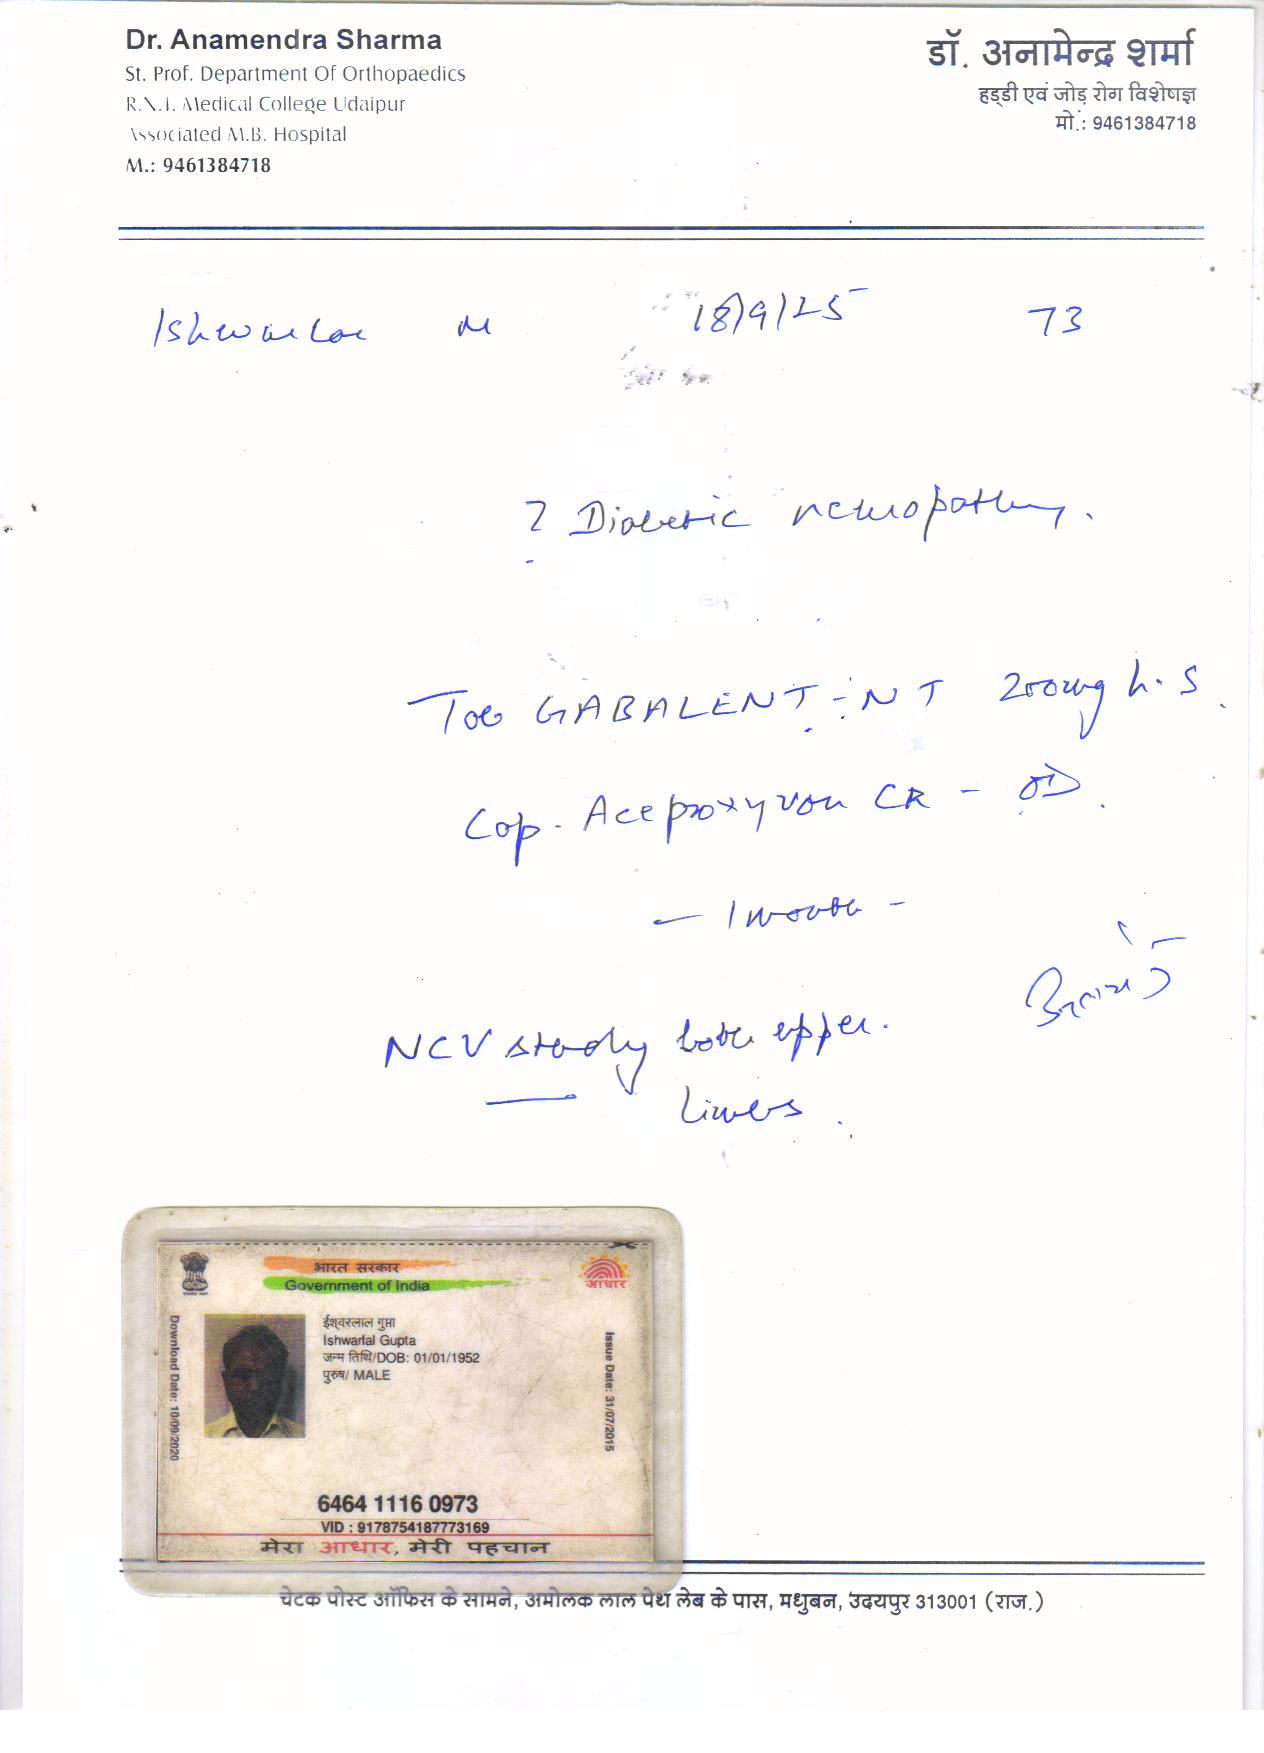 Dr. Anamendra Sharma
St. Prof. Department Of Orthopaedics
R.N.T. Medical College Udaipur
Associated M.B. Hospital
M.: 9461384718
डॉ. अनामेन्द्र शर्मा
हड्डी एवं जोड़ रोग विशेषज्ञ
मो.: 9461384718
Ishwarlal M 18/9/25 73
? Diabetic neuropathy.
Tab GABALENT-NT 200mg h.s.
Cap. Aceproxyvon CR - OD.
- 1 month -
NCV study both upper.
Limbs.
भारत सरकार
Government of India
आधार
Download Date: 10/09/2020
ईश्वरलाल गुप्ता
Ishwarlal Gupta
जन्म तिथि/DOB: 01/01/1952
पुरुष/ MALE
Issue Date: 31/07/2015
6464 1116 0973
VID : 9178754187773169
मेरा आधार, मेरी पहचान
चेटक पोस्ट ऑफिस के सामने, अमोलक लाल पेथ लेब के पास, मधुबन, उदयपुर 313001 (राज.)